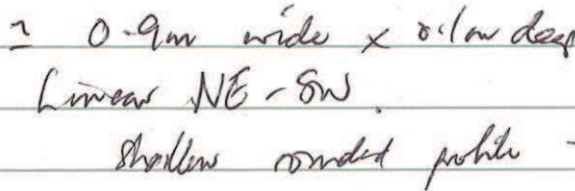 ≃ 0.9m wide x 0.1m deep
Linear NE-SW.
shallow rounded profile -